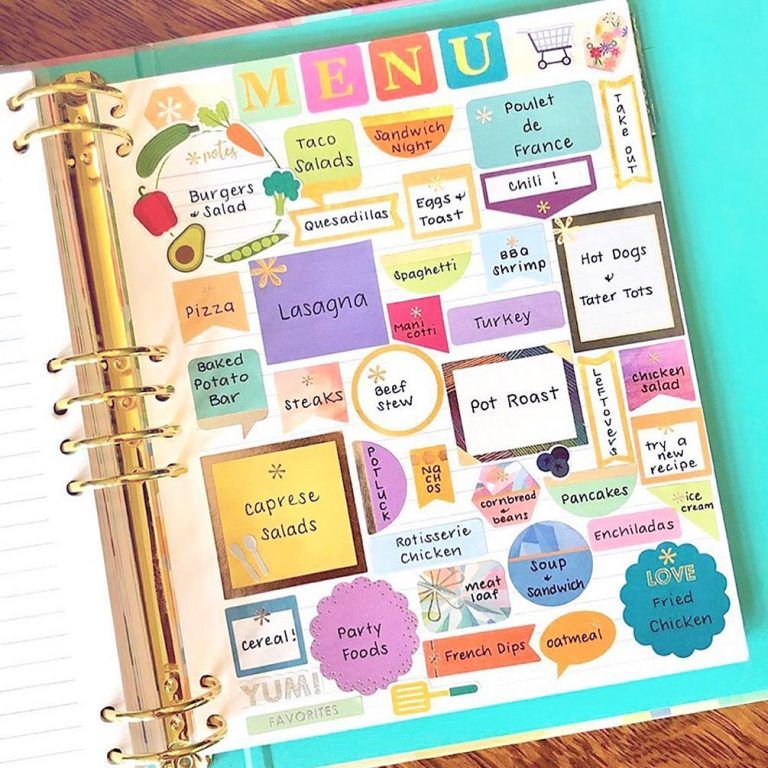 MENU
notes
Burgers
& Salad
Taco
Salads
Sandwich
Night
Poulet
de
France
Take out
Quesadillas
Eggs &
Toast
Chili !
Pizza
Lasagna
Spaghetti
BBQ
Shrimp
Hot Dogs
&
Tater Tots
Mani
cotti
Turkey
Baked
Potato
Bar
Steaks
Beef
Stew
Pot Roast
Leftovers
Chicken
Salad
try a
new
recipe
Caprese
Salads
Potluck
Na
ch
os
cornbread
&
beans
Pancakes
ice
cream
Rotisserie
Chicken
Enchiladas
Soup
&
Sandwich
meat
loaf
LOVE
Fried
Chicken
cereal!
Party
Foods
French Dips
oatmeal
YUM!
FAVORITES